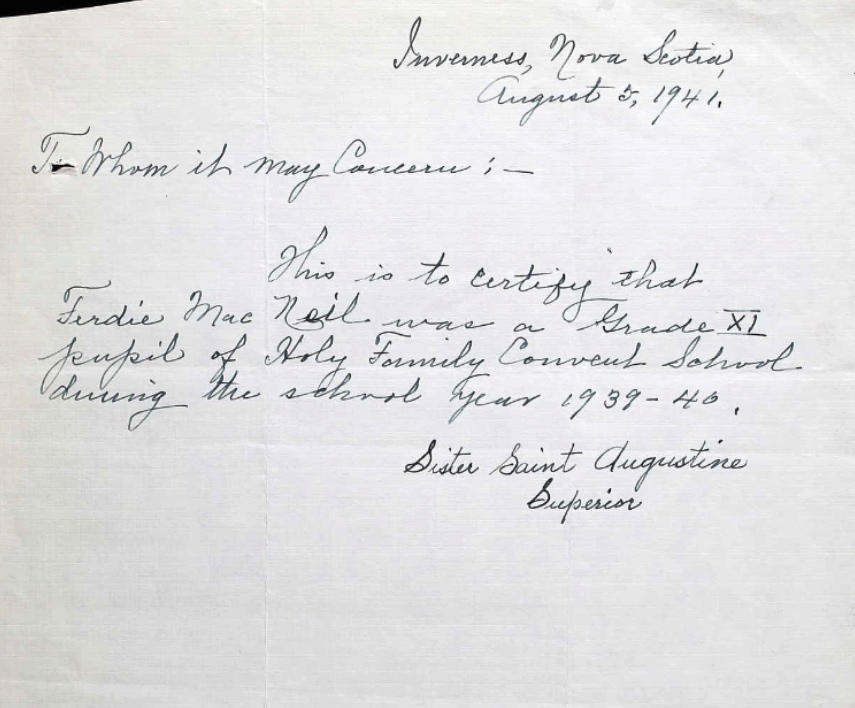 Inverness, Nova Scotia,
August 5, 1941.
To Whom it may Concern ; —
This is to certify that
Ferdie Mac Neil was a Grade XI
pupil of Holy Family Convent School
during the school year 1939-40.
Sister Saint Augustine
Superior